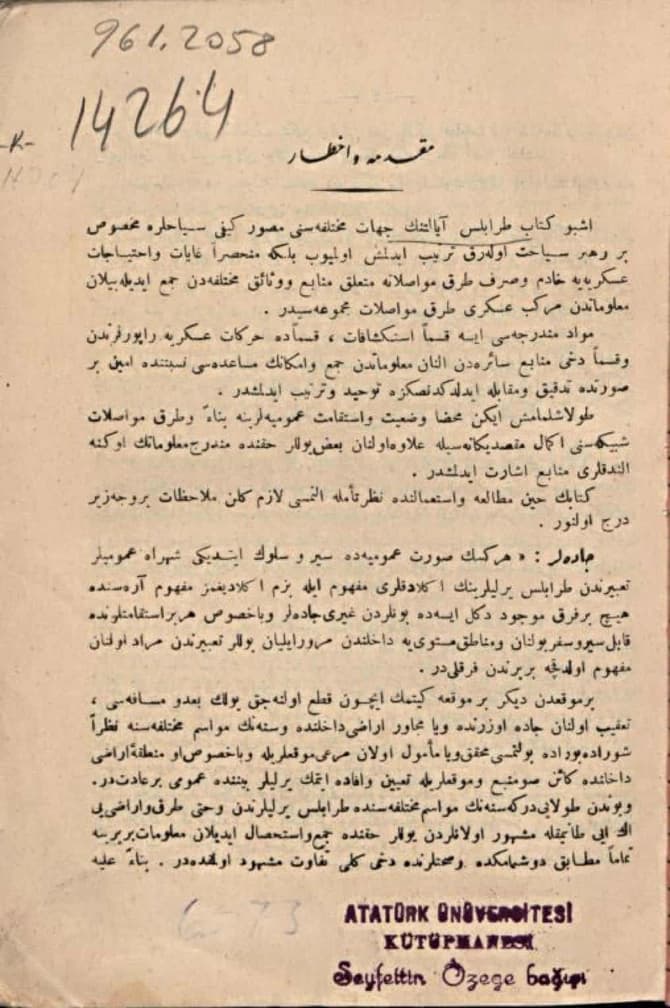 961.2058
14264
-K-
مقدمه واخطار
اشبو كتاب طرابلس آيالتنك جهات مختلفه‌سنى مصور كيفى سياحلره مخصوص
بر رهبر سياحت اوله‌رق ترتيب ايدلمش اولميوب بلكه منحصراً غايات واحتياجات
عسكريه‌يه خادم وصرف طرق مواصلاته متعلق منابع ووثائق مختلفه‌دن جمع ايديله‌بيلان
معلوماتدن مركب عسكرى طرق مواصلات مجموعه‌سيدر .
مواد مندرجه‌سى ايسه قسماً استكشافات ، قسماًده حركات عسكريه راپورلرندن
وقسماً دخى منابع سائره‌دن النان معلوماتدن جمع وامكانك مساعده‌سى نسبتنده امين بر
صورتده تدقيق ومقابله ايدلدكدنصكره توحيد وترتيب ايدلمشدر .
طولاشلمامش ايكن محضا وضعيت واستقامت عموميه‌لرينه بناءً وطرق مواصلات
شبكه‌سنى اكمال مقصديكانه‌سيله علاوه‌اولنان بعض‌يوللر حقنده مندرج‌معلوماتك اوكنه
الندقلرى منابع اشارت ايدلمشدر .
كتابك حين مطالعه واستعمالنده نظر تأمله النمسى لازم كلن ملاحظات بروجه‌زير
درج اولنور .
جاده‌لر : « هركسك صورت عموميه‌ده سير و سلوك ايتديكى شهراه عموميلر
تعبيرندن طرابلس يرليلرينك اكلادقلرى مفهوم ايله بزم اكلاديغمز مفهوم آره‌سنده
هيچ برفرق موجود دكل ايسه‌ده بونلردن غيرى‌جاده‌لر وباخصوص هربراستقامتلرنده
قابل‌سيروسفربولنان ومناطق‌مستويه داخلندن مرورايليان يوللر تعبيرندن مراد اولنان
مفهوم اولدقچه بربرندن فرقلى‌در .
برموقعدن ديكر بر موقعه كيتمك ايچون قطع اولنه‌جق يولك بعدو مسافه‌سى ،
تعقيب اولنان جاده اوزرنده ويا مجاور اراضى‌داخلنده وسنه‌نك مواسم مختلفه‌سنه نظراً
شوراده‌بوراده بولنمسى‌محقق‌ويا مأمول اولان مرعى‌موقعلريله وباخصوص‌او منطقهٔ‌اراضى
داخلنده كائن صومنبع وموقعلريله تعيين وافاده ايتمك يرليلر بيننده عمومى برعادت‌در.
وبوندن طولايى‌دركه‌سنه‌نك مواسم‌مختلفه‌سنده طرابلس يرليلرندن وحتى طرق‌واراضى‌يى
اك ايى طانيمقله مشهور اولانلردن يوللر حقنده جمع‌واستحصال ايديلان معلومات‌بربرينه
تماماً مطابق دوشمامكده وصحتلرنده دخى كلى تفاوت مشهود اولمقده‌در . بناءً عليه
ATATÜRK ÜNÜVERSİTESİ
KÜTÜPHANESİ
Seyfettin Özege bağışı